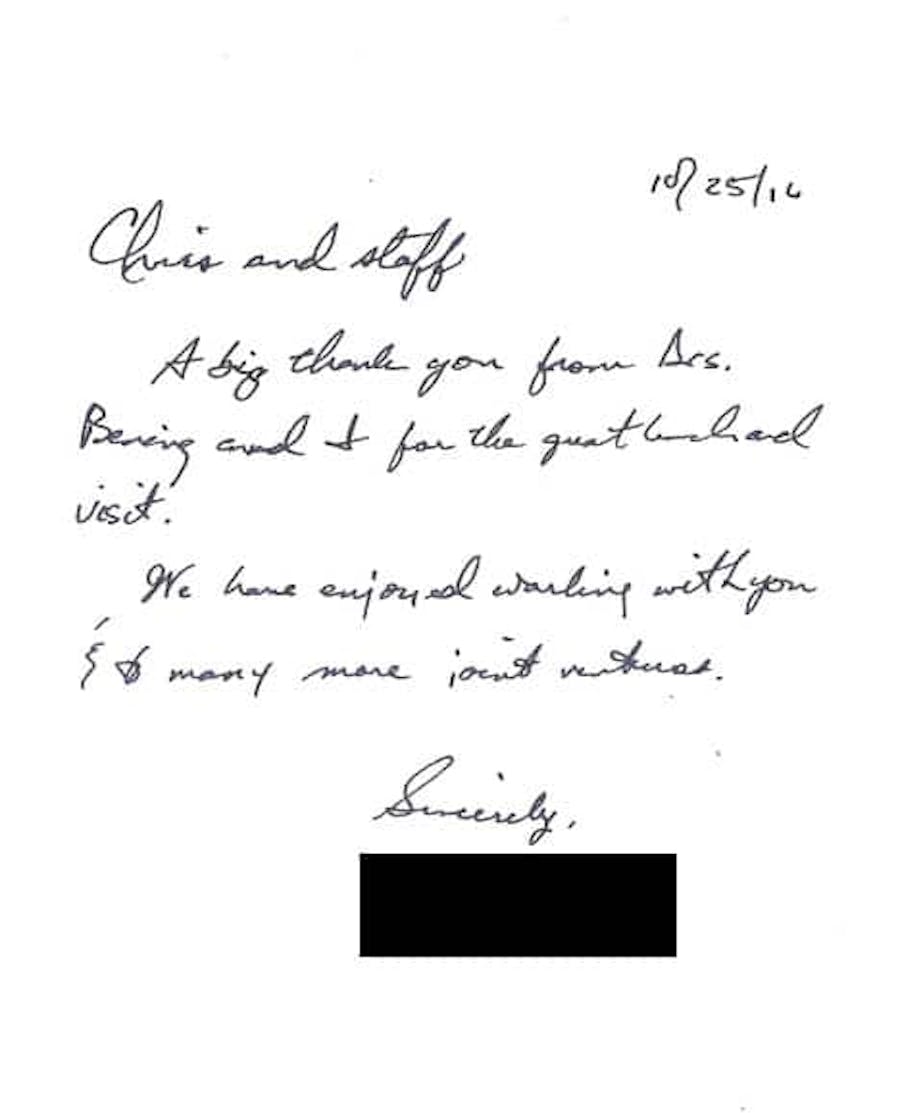 10/25/16
Chris and staff
A big thank you from Drs.
Bening and I for the great lunch and
visit.
We have enjoyed working with you
& to many more joint ventures.
Sincerely,